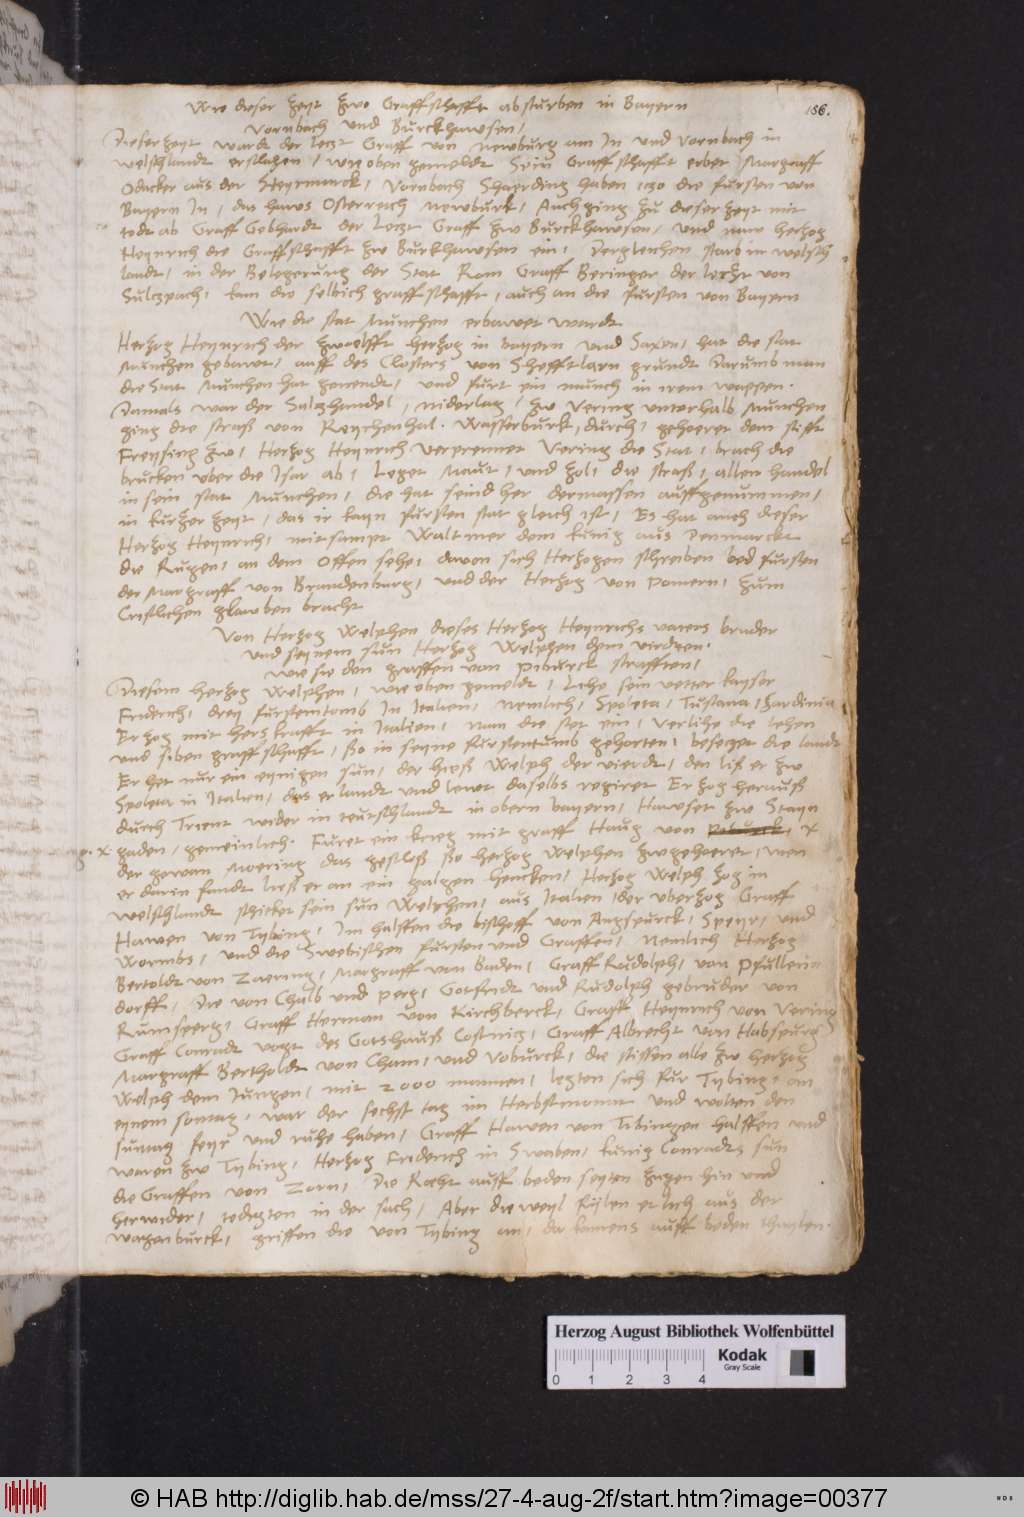 Wie dieser zeyt zwo Graffschafft absturben in Bayern
186.
Vornbach und Burckhawsen,
Dieser zeyt wardt der letzt Graff von Newburg am In und Vornbach in
welschlandt erslagen, wie oben gemeldt Sein Graffschafft erbet Margraff
Odacker aus der Steyrmarck, Vornbach Shaerding haben izo die fursten von
Bayern In, das haws Osterreich Newburk, Auch ging zu dieser zeyt mit
todt ab Graff Gebhardt der Letzt Graff zw Burckhawsen, und nam herzog
Heynrich die Graffschafft zw Burkhawsen ein, Dergleichen starb in welsch
landt, in der Belegerung der Stat Rom Graff Beringer der lezt von
Sulczpach, kam die selbich graffschafft, auch an die fursten von Bayern
Wie die stat Munchen erbawet wardt
Herzog Heynrich der zwoelfft herzog in bayern und Saxen, hat die stat
Munchen gebawt, auff des Closters von Shefftlarn grundt Darumb man
die Stat Munchen hat genendt, und furt ein munch in irem wappen.
Damals war der Salzhandel, niderlag, zw Vering unterhalb Munchen
ging die straß von Reychenhal. Wasserburk, durch, gehoeret dem stifft
Freysing zw, Herzog Heynrich verprennet Vering die Stat, brach die
brucken uber die Isar ab, Leget Maut, und zol, die straß, allen handel
in sein stat Munchen, die hat seind her dermassen auffgenummen,
in kurzer zeyt, das ir kayn fursten stat gleich ist, Es hat auch dieser
Herzog Heynrich, mitsampt Waltmer dem kunig aus Denmarckt
die Rugen, an dem Offen sehe, davon sich Herzogen schreiben bed fursten
der Margraff von Brandenburg, und der Herzog von Pomern, zum
Cristlichen glawben bracht
Von Herzog Welphen dieses Herzog Heynrichs vaters bruder
und seynem sun Herzog Welphen dem virdten.
wie sie den graffen von strafften,
Diesem herzog Welphen, wie oben gemeldt, Lihe sein vetter kayser
Friderich, drey furstentomb In Italien, Nemlich, Spoleta, Tustana, Sardinia
Er zog mit hers krafft in Italien, nam die stet ein, verlihe die lehen
und siben graffschafft, so in seyne furstentumb gehorten, besezet die landt
Er het nur ein eynigen sun, der hieß Welph der vierdt, den liß er zw
Spoleta in Italien, das er landt und lewt daselbs regiret Er zog herauß
durch Trient wider in teutschlandt in obern bayern, Hawset zw Stayn
gaden, gemeinlich. Furet ein krieg mit graff Haug von x
x der gewan Moering das gesloß so herzog Welphen zwgehoeret, wen
er darin fandt ließ er an ein galgen hencken, Herzog Welph zog in
welschlandt schicket sein sun Welphen, aus Italien, der uberzog Graff
Hawen von Tybing, Im halffen die bischoff von Augspurck, Speyr, und
Wormbs, und die Swebischen fursten und Graffen, Nemlich Herzog
Bertoldt von Zaering, Margraff von Baden, Graff Rudolph, von Pfullenn
dorff, Die von Chalb und perg, Gotfridt und Rudolph gebruder von
Rumsperg, Graff Herman von Kirchberck, Graff Heynrich von Vering
Graff Conradt vogt des Gotshauß Costnicz, Graff Albrecht von Habspurg
Margraff Bertholdt von Cham, und Voburck, die stiessen alle zw herzog
Welph dem Jungen, mit 2000 mannen, legten sich fur Tybing, an
eynem sontag, war der sechst tag im Herbstmonat und wolten den
suntag feyr und ruhe haben, Graff Hawen von Tibingen halffen und
waren zw Tybing, Herzog Friderich in Swaben, kunig Conradts sun
die Graffen von Zorn, Die Recht auff beden seyten zugen hin und
herwider, in der sach, Aber dieweyl sich aus der
wagenburck, griffen die von Tybing an, da kamens auff beden thaylen.
Herzog August Bibliothek Wolfenbüttel
Kodak
Gray Scale
0 1 2 3 4
© HAB http://diglib.hab.de/mss/27-4-aug-2f/start.htm?image=00377